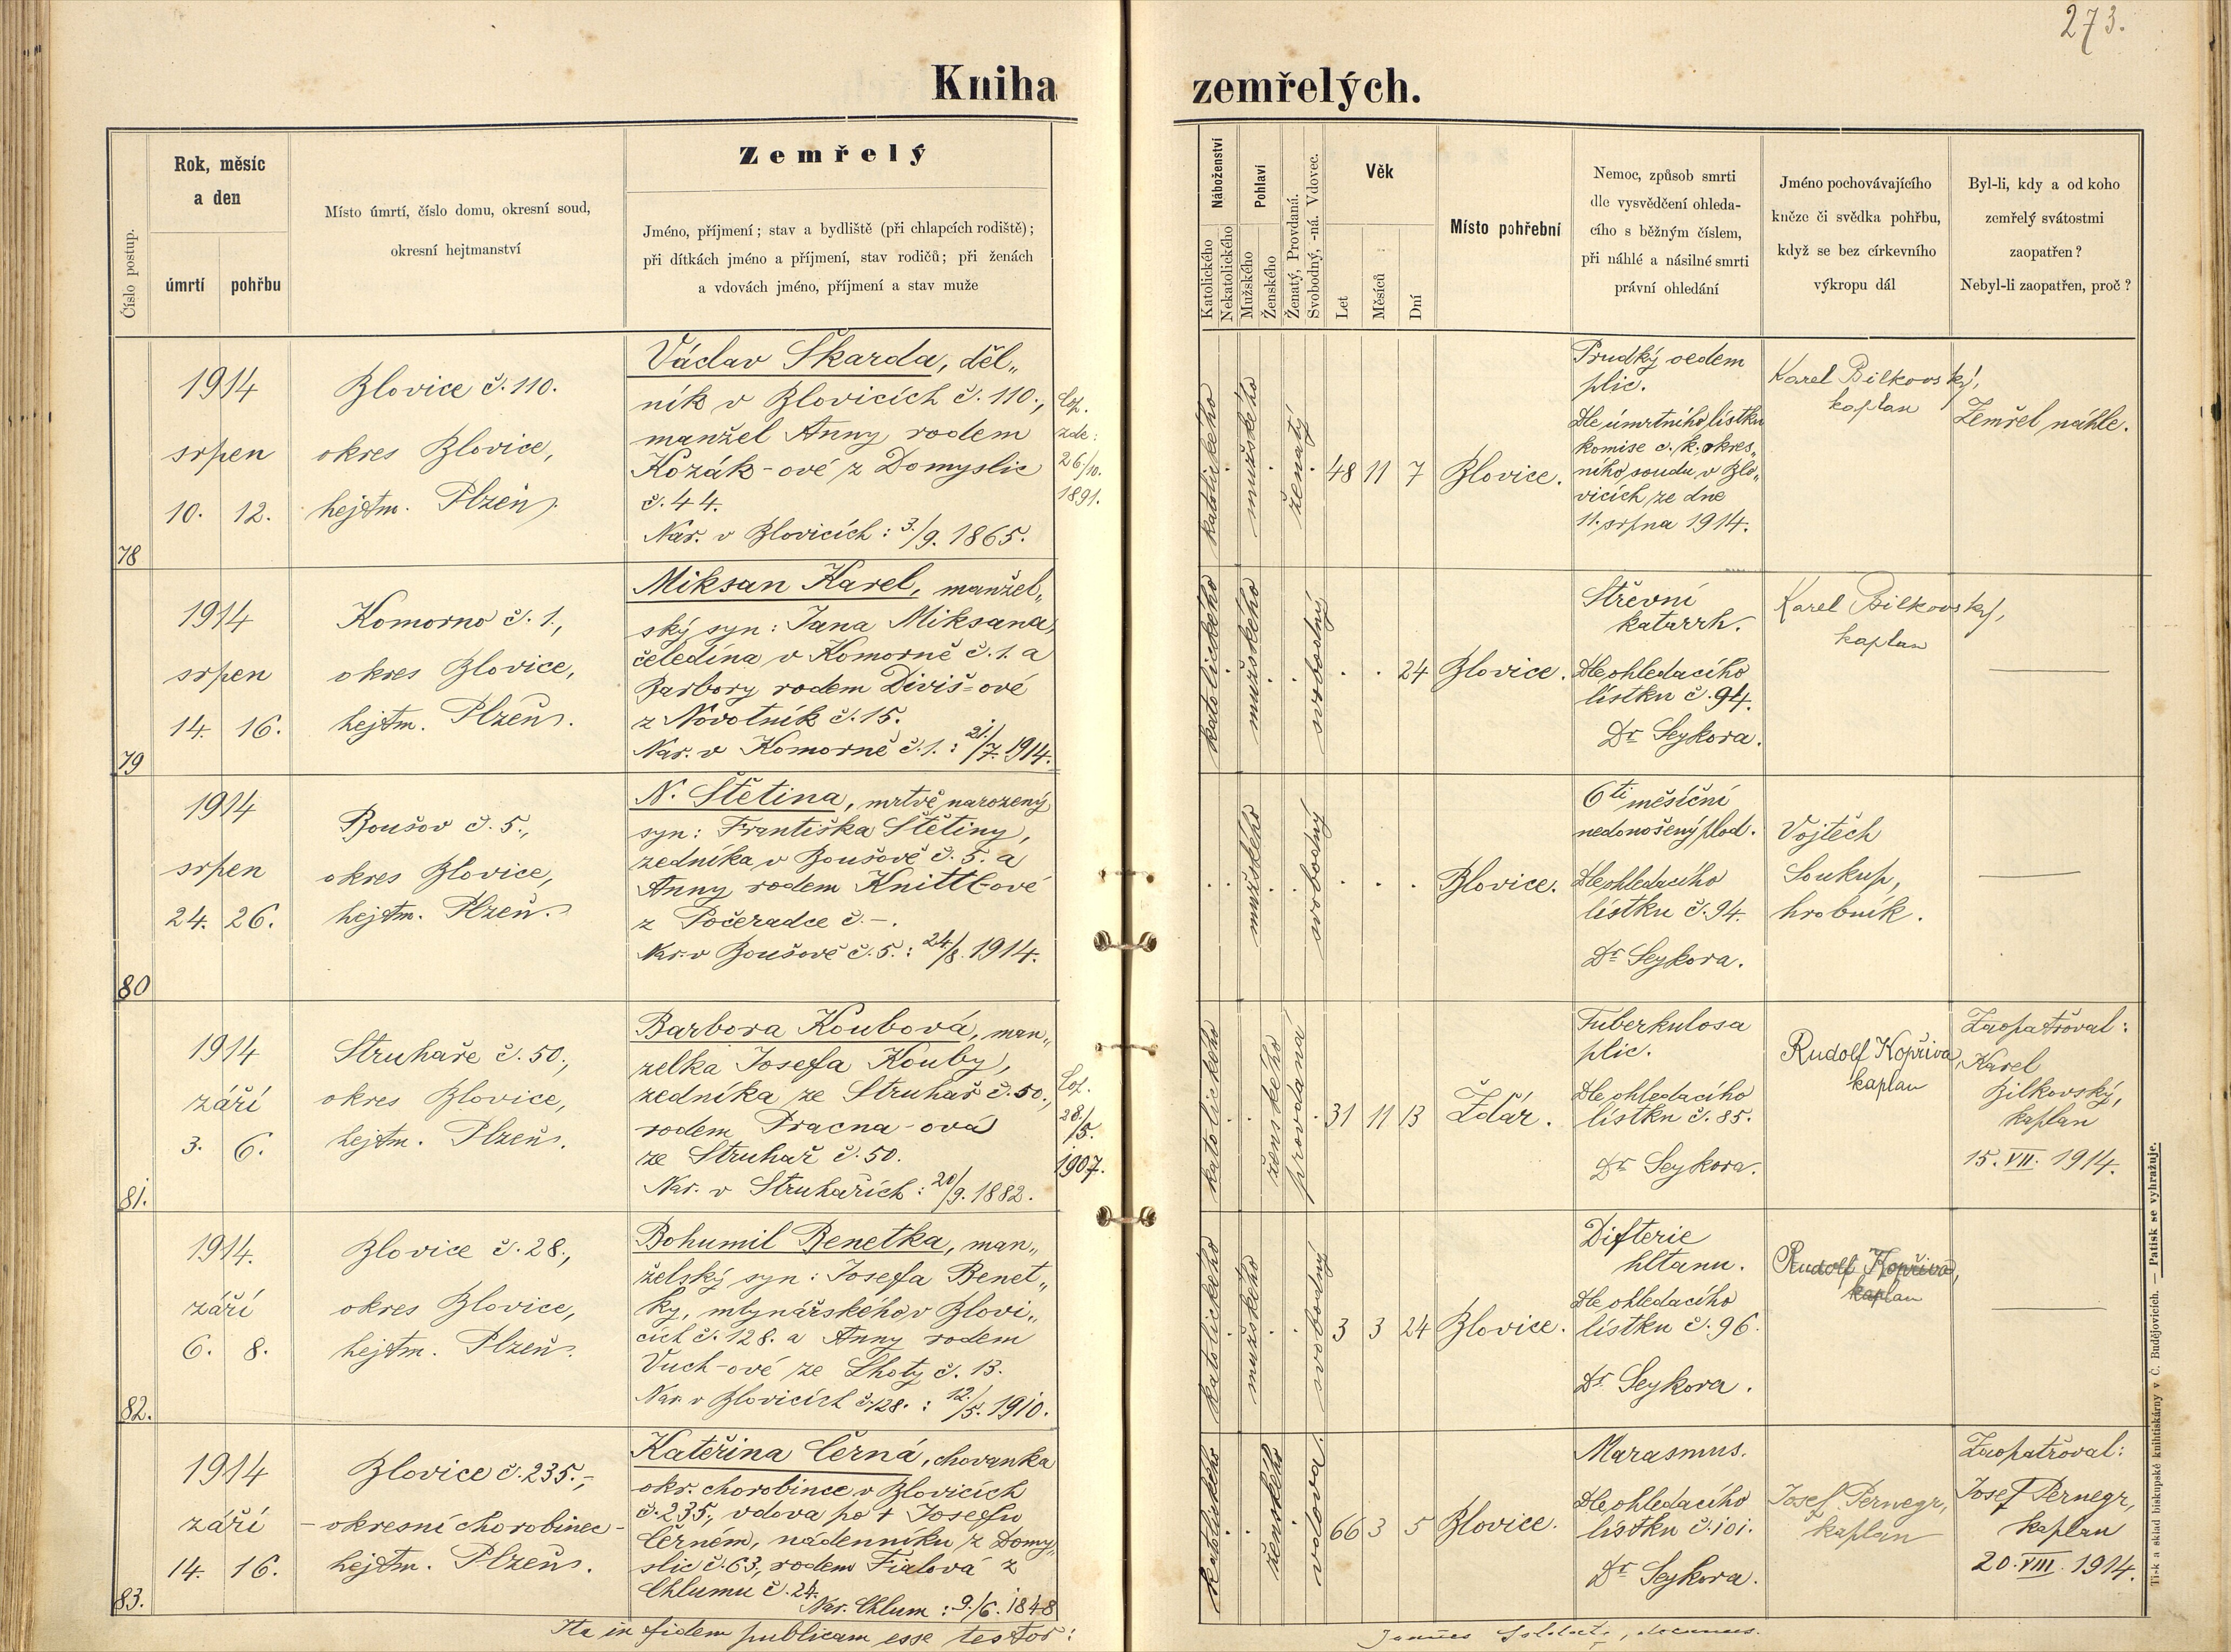 273.
Kniha zemřelých.
Číslo postup.
Rok, měsíc
a den
úmrtí pohřbu
Místo úmrtí, číslo domu, okresní soud,
okresní hejtmanství
Zemřelý
Jméno, příjmení; stav a bydliště (při chlapcích rodiště);
při dítkách jméno a příjmení, stav rodičů; při ženách
a vdovách jméno, příjmení a stav muže
Náboženství
Katolického
Nekatolického
Pohlaví
Mužského
Ženského
Ženatý, Provdaná.
Svobodný, -ná. Vdovec.
Věk
Let
Měsíců
Dní
Místo pohřební
Nemoc, způsob smrti
dle vysvědčení ohleda-
cího s běžným číslem,
při náhlé a násilné smrti
právní ohledání
Jméno pochovávajícího
kněze či svědka pohřbu,
když se bez církevního
výkropu dál
Byl-li, kdy a od koho
zemřelý svátostmi
zaopatřen?
Nebyl-li zaopatřen, proč?
78
1914
srpen
10. 12.
Blovice č. 110.
okres Blovice,
hejtm. Plzeň.
Václav Škarda, děl„
ník v Blovicích č. 110.,
manžel Anny rodem
Kozák-ové z Domyslic
č. 44.
Nar. v Blovicích: 3./9. 1865.
Cop.
zde:
26/10.
1891.
katolického
mužského
ženatý
48 11 7
Blovice.
Prudký oedem
plic.
Dle úmrtního lístku
komise c. k. okres„
ního soudu v Blo„
vicích ze dne
11. srpna 1914.
Karel Bílkovský,
kaplan
Zemřel náhle.
79
1914
srpen
14. 16.
Komorno č. 1.,
okres Blovice,
hejtm. Plzeň.
Miksan Karel, manžel„
ský syn: Jana Miksana,
čeledína v Komorně č. 1. a
Barbory rodem Diviš-ové
z Novotník č. 15.
Nar. v Komorně č. 1.: 21./7. 1914.
katolického
mužského
svobodný
24
Blovice.
Střevní
katarrh.
Dle ohledacího
lístku č. 94.
Dr Seykora.
Karel Bílkovský,
kaplan
80
1914
srpen
24. 26.
Boušov č. 5.,
okres Blovice,
hejtm. Plzeň.
N. Štětina, mrtvě narozený
syn: Františka Štětiny,
zedníka v Boušově č. 5. a
Anny rodem Knittl-ové
z Počeradce č. -.
Nar. v Boušově č. 5.: 24./8. 1914.
mužského
svobodný
Blovice.
6ti měsíční
nedonošený plod.
Dle ohledacího
lístku č. 94.
Dr Seykora.
Vojtěch
Soukup,
hrobník.
81.
1914
září
3. 6.
Struhaře č. 50.,
okres Blovice,
hejtm. Plzeň.
Barbora Koubová, man„
želka Josefa Kouby,
zedníka ze Struhař č. 50.,
rodem Pracna-ová
ze Struhař č. 50.
Nar. v Struhařích: 20/9. 1882.
Cop.
28./5.
1907.
katolického
ženského
provdaná
31 11 13
Ždár.
Tuberkulosa
plic.
Dle ohledacího
lístku č. 85.
Dr Seykora.
Rudolf Kopřiva,
kaplan
Zaopatřoval:
Karel
Bílkovský,
kaplan
15. VII. 1914.
82.
1914.
září
6. 8.
Blovice č. 28.,
okres Blovice,
hejtm. Plzeň.
Bohumil Benetka, man„
želský syn: Josefa Benet„
ky, mlynářského v Blovi„
cích č. 128. a Anny rodem
Vuch-ové ze Lhoty č. 13.
Nar. v Blovicích č. 128.: 12./5. 1910.
katolického
mužského
svobodný
3 3 24
Blovice.
Difterie
hltanu.
Dle ohledacího
lístku č. 96.
Dr Seykora.
Rudolf Kopřiva,
kaplan
83.
1914
září
14. 16.
Blovice č. 235.,-
- okresní chorobinec -
hejtm. Plzeň.
Kateřina Černá, chovanka
okr. chorobince v Blovicích
č. 235., vdova po † Josefu
Černém, nádenníku z Domy„
slic č. 63., rodem Fialová z
Chlumu č. 24.
Nar. Chlum: 9./6. 1848
katolického
ženského
vdova.
66 3 5
Blovice.
Marasmus.
Dle ohledacího
lístku č. 101.
Dr Seykora.
Josef Pernegr,
kaplan
Zaopatřoval:
Josef Pernegr,
kaplan
20. VIII. 1914.
Ita in fidem publicam esse testor:
decanus.
Tisk a sklad biskupské knihtiskárny v Č. Budějovicích. — Patisk se vyhražuje.